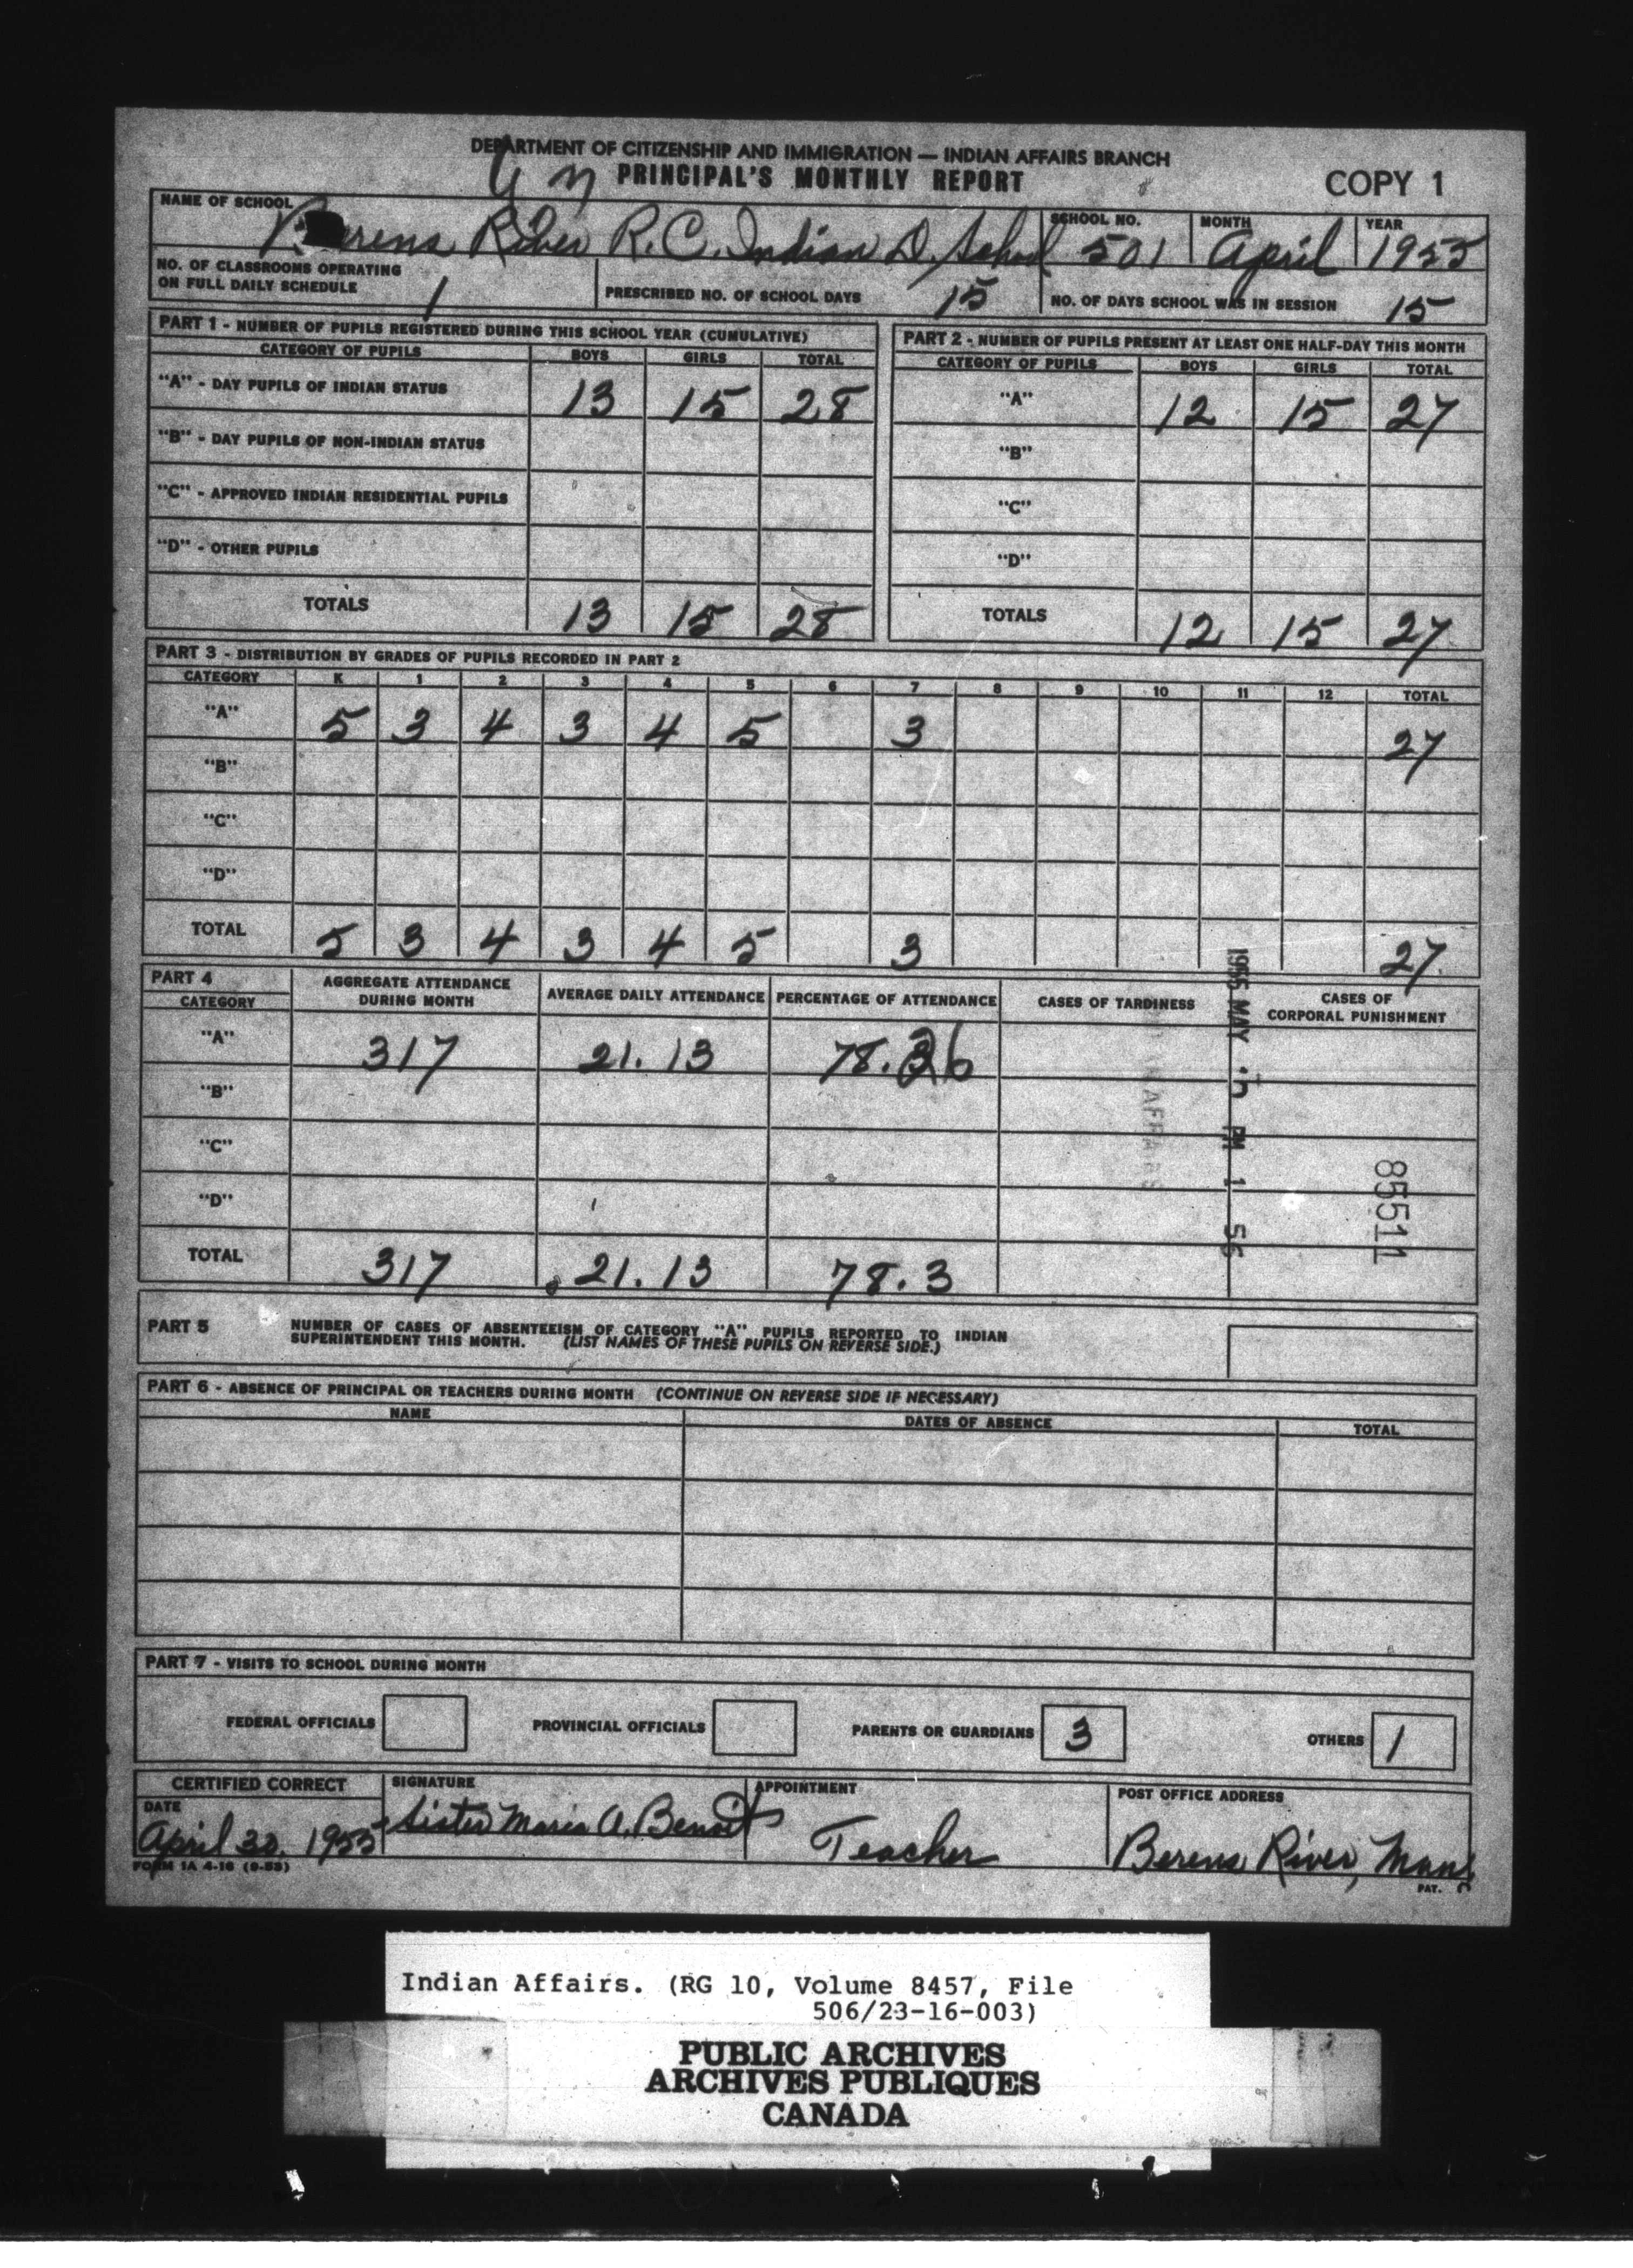 DEPARTMENT OF CITIZENSHIP AND IMMIGRATION — INDIAN AFFAIRS BRANCH
PRINCIPAL'S MONTHLY REPORT
COPY 1
NAME OF SCHOOL Berens River R.C. Indian D. School SCHOOL NO. 501 MONTH April YEAR 1955
NO. OF CLASSROOMS OPERATING
ON FULL DAILY SCHEDULE 1 PRESCRIBED NO. OF SCHOOL DAYS 15 NO. OF DAYS SCHOOL WAS IN SESSION 15
PART 1 - NUMBER OF PUPILS REGISTERED DURING THIS SCHOOL YEAR (CUMULATIVE)
CATEGORY OF PUPILS BOYS GIRLS TOTAL
"A" - DAY PUPILS OF INDIAN STATUS 13 15 28
"B" - DAY PUPILS OF NON-INDIAN STATUS
"C" - APPROVED INDIAN RESIDENTIAL PUPILS
"D" - OTHER PUPILS
TOTALS 13 15 28
PART 2 - NUMBER OF PUPILS PRESENT AT LEAST ONE HALF-DAY THIS MONTH
CATEGORY OF PUPILS BOYS GIRLS TOTAL
"A" 12 15 27
"B"
"C"
"D"
TOTALS 12 15 27
PART 3 - DISTRIBUTION BY GRADES OF PUPILS RECORDED IN PART 2
CATEGORY K 1 2 3 4 5 6 7 8 9 10 11 12 TOTAL
"A" 5 3 4 3 4 5 3 27
"B"
"C"
"D"
TOTAL 5 3 4 3 4 5 3 27
PART 4
CATEGORY AGGREGATE ATTENDANCE DURING MONTH AVERAGE DAILY ATTENDANCE PERCENTAGE OF ATTENDANCE CASES OF TARDINESS CASES OF CORPORAL PUNISHMENT
"A" 317 21.13 78.26
"B"
"C"
"D"
TOTAL 317 21.13 78.3
1955 MAY 5 PM 1 56
85511
PART 5 NUMBER OF CASES OF ABSENTEEISM OF CATEGORY "A" PUPILS REPORTED TO INDIAN
SUPERINTENDENT THIS MONTH. (LIST NAMES OF THESE PUPILS ON REVERSE SIDE.)
PART 6 - ABSENCE OF PRINCIPAL OR TEACHERS DURING MONTH (CONTINUE ON REVERSE SIDE IF NECESSARY)
NAME DATES OF ABSENCE TOTAL
PART 7 - VISITS TO SCHOOL DURING MONTH
FEDERAL OFFICIALS PROVINCIAL OFFICIALS PARENTS OR GUARDIANS 3 OTHERS 1
CERTIFIED CORRECT SIGNATURE APPOINTMENT POST OFFICE ADDRESS
DATE
April 30, 1955 Sister Maria A. Benoit Teacher Berens River, Man.
FORM 1A 4-16 (9-53)
PAT.
Indian Affairs. (RG 10, Volume 8457, File
506/23-16-003)
PUBLIC ARCHIVES
ARCHIVES PUBLIQUES
CANADA